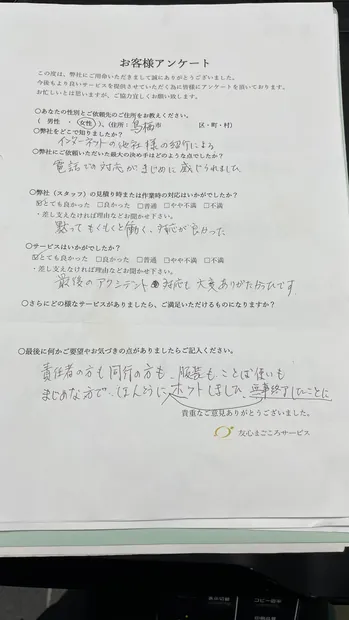 お客様アンケート
この度は、弊社にご用命いただきまして誠にありがとうございました。
今後もより良いサービスを提供させていただく為に皆様にアンケートを頂いております。
お忙しいとは思いますが、ご協力宜しくお願い致します。
○あなたの性別とご依頼先のご住所をお教えください。
(男性・女性)、(住所:鳥栖市 区・町・村)
○弊社をどこで知りましたか?
インターネットの他社様の紹介による
○弊社にご依頼いただいた最大の決め手はどのような点でしたか?
電話での対応がまじめに感じられました
○弊社(スタッフ)の見積り時または作業時の対応はいかがでしたか?
☑とても良かった □良かった □普通 □やや不満 □不満
・差し支えなければ理由などお聞かせ下さい。
黙ってもくもくと働く、対応が良かった
○サービスはいかがでしたか?
☑とても良かった □良かった □普通 □やや不満 □不満
・差し支えなければ理由などお聞かせ下さい。
最後のアクシデント 対応も大変ありがたかったです
○さらにどの様なサービスがありましたら、ご満足いただけるものになりますか?
○最後に何かご要望やお気づきの点がありましたらご記入ください。
責任者の方も同行の方も、服装も、ことば使いも
まじめな方で、ほんとうにホットしました 無事終了したことに
貴重なご意見ありがとうございました。
友心まごころサービス
コピー